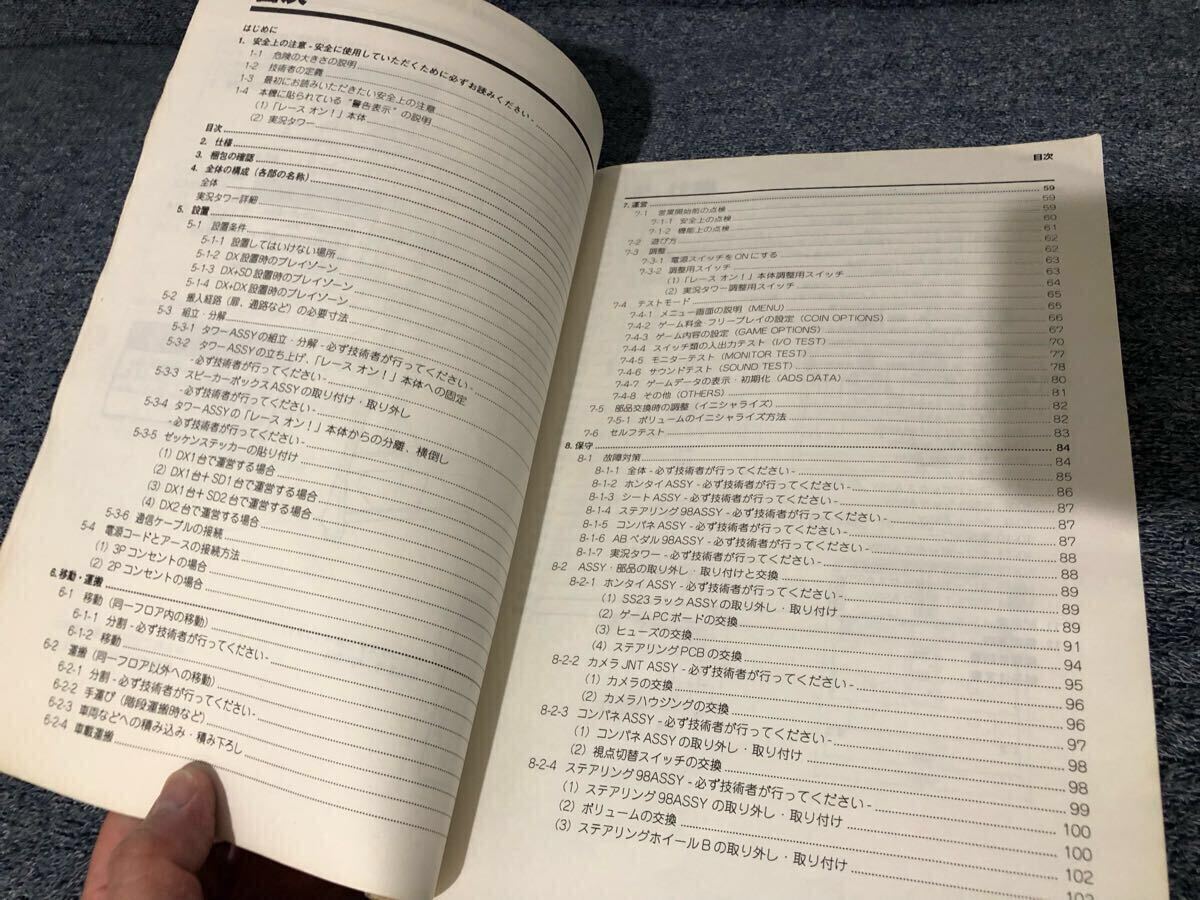 目次
はじめに
1. 安全上の注意 - 安全に使用していただくために必ずお読みください -
1-1 危険の大きさの説明
1-2 技術者の定義
1-3 最初にお読みいただきたい安全上の注意
1-4 本機に貼られている“警告表示”の説明
(1)「レース オン！」本体
(2) 実況タワー
目次
2. 仕様
3. 梱包の確認
4. 全体の構成（各部の名称）
全体
実況タワー詳細
5. 設置
5-1 設置条件
5-1-1 設置してはいけない場所
5-1-2 DX設置時のプレイゾーン
5-1-3 DX+SD設置時のプレイゾーン
5-1-4 DX+DX設置時のプレイゾーン
5-2 搬入経路（扉、通路など）の必要寸法
5-3 組立・分解
5-3-1 タワーASSYの組立・分解 - 必ず技術者が行ってください -
5-3-2 タワーASSYの立ち上げ、「レース オン！」本体への固定
- 必ず技術者が行ってください -
5-3-3 スピーカーボックスASSYの取り付け・取り外し
- 必ず技術者が行ってください -
5-3-4 タワーASSYの「レース オン！」本体からの分離、横倒し
- 必ず技術者が行ってください -
5-3-5 ゼッケンステッカーの貼り付け
(1) DX1台で運営する場合
(2) DX1台+SD1台で運営する場合
(3) DX1台+SD2台で運営する場合
(4) DX2台で運営する場合
5-3-6 通信ケーブルの接続
5-4 電源コードとアースの接続方法
(1) 3Pコンセントの場合
(2) 2Pコンセントの場合
6. 移動・運搬
6-1 移動（同一フロア内の移動）
6-1-1 分割 - 必ず技術者が行ってください -
6-1-2 移動
6-2 運搬（同一フロア以外への移動）
6-2-1 分割 - 必ず技術者が行ってください -
6-2-2 手運び（階段運搬時など）
6-2-3 車両などへの積み込み・積み下ろし
6-2-4 車載運搬
目次
7. 運営 59
7-1 営業開始前の点検 59
7-1-1 安全上の点検 59
7-1-2 機能上の点検 60
7-2 遊び方 61
7-3 調整 62
7-3-1 電源スイッチをONにする 62
7-3-2 調整用スイッチ 63
(1)「レース オン！」本体調整用スイッチ 63
(2) 実況タワー調整用スイッチ 64
7-4 テストモード 65
7-4-1 メニュー画面の説明（MENU） 65
7-4-2 ゲーム料金・フリープレイの設定（COIN OPTIONS） 66
7-4-3 ゲーム内容の設定（GAME OPTIONS） 67
7-4-4 スイッチ類の入出力テスト（I/O TEST） 70
7-4-5 モニターテスト（MONITOR TEST） 77
7-4-6 サウンドテスト（SOUND TEST） 78
7-4-7 ゲームデータの表示・初期化（ADS DATA） 80
7-4-8 その他（OTHERS） 81
7-5 部品交換時の調整（イニシャライズ） 82
7-5-1 ボリュームのイニシャライズ方法 82
7-6 セルフテスト 83
8. 保守 84
8-1 故障対策 84
8-1-1 全体 - 必ず技術者が行ってください - 85
8-1-2 ホンタイASSY - 必ず技術者が行ってください - 86
8-1-3 シートASSY - 必ず技術者が行ってください - 87
8-1-4 ステアリング98ASSY - 必ず技術者が行ってください - 87
8-1-5 コンパネASSY - 必ず技術者が行ってください - 87
8-1-6 ABペダル98ASSY - 必ず技術者が行ってください - 88
8-1-7 実況タワー - 必ず技術者が行ってください - 88
8-2 ASSY・部品の取り外し・取り付けと交換 89
8-2-1 ホンタイASSY - 必ず技術者が行ってください - 89
(1) SS23ラックASSYの取り外し・取り付け 89
(2) ゲームPCボードの交換 91
(3) ヒューズの交換 94
(4) ステアリングPCBの交換 95
8-2-2 カメラJNT ASSY - 必ず技術者が行ってください - 96
(1) カメラの交換 96
(2) カメラハウジングの交換 97
8-2-3 コンパネASSY - 必ず技術者が行ってください - 98
(1) コンパネASSYの取り外し・取り付け 98
(2) 視点切替スイッチの交換 99
8-2-4 ステアリング98ASSY - 必ず技術者が行ってください - 100
(1) ステアリング98ASSYの取り外し・取り付け 100
(2) ボリュームの交換 102
(3) ステアリングホイールBの取り外し・取り付け